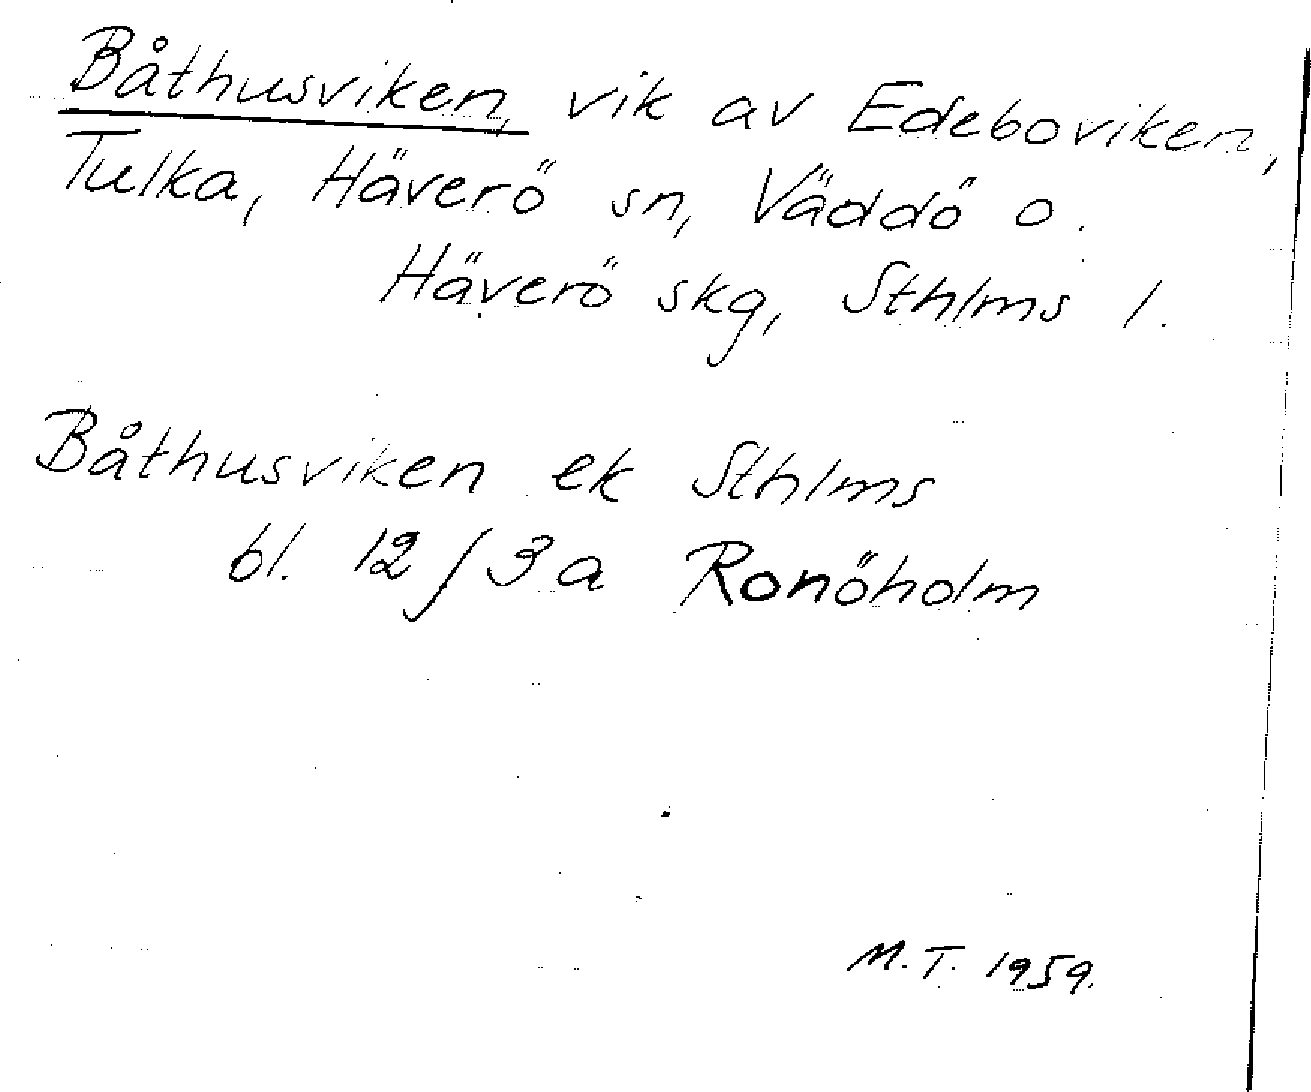 Båthusviken, vik av Edeboviken,
Tulka, Häverö sn, Väddö o.
Häverö skg, Sthlms l.
Båthusviken ek Sthlms
bl. 12/3a Ronöholm
M.T. 1959.